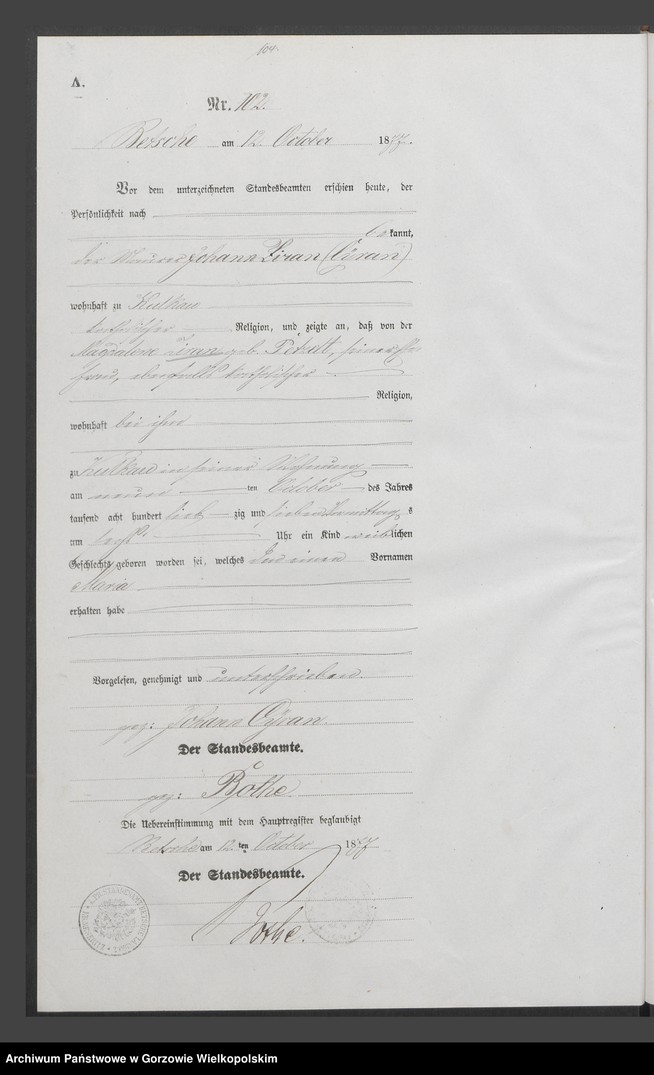 104.
A.
Nr. 102.
Betsche am 12. October 1877.
Vor dem unterzeichneten Standesbeamten erschien heute, der
Persönlichkeit nach
bekannt,
der Maurer Johann Ziran (Cyran)
wohnhaft zu Kulkau
katholischer Religion, und zeigte an, daß von der
Magdalena Ziran geb. , seiner Ehe
frau, ebenfalls katholischer
Religion,
wohnhaft bei ihm
zu Kulkau in seiner Wohnung
am neun ten October des Jahres
tausend acht hundert sieb zig und sieben Vormittags
um sechs Uhr ein Kind weiblichen
Geschlechts geboren worden sei, welches den einen Vornamen
Maria
erhalten habe
Vorgelesen, genehmigt und unterschrieben.
gez: Johann Cyran.
Der Standesbeamte.
gez: Bothe
Die Uebereinstimmung mit dem Hauptregister beglaubigt
Betsche am 12. ten October 1877
Der Standesbeamte.
Bothe.
Archiwum Państwowe w Gorzowie Wielkopolskim